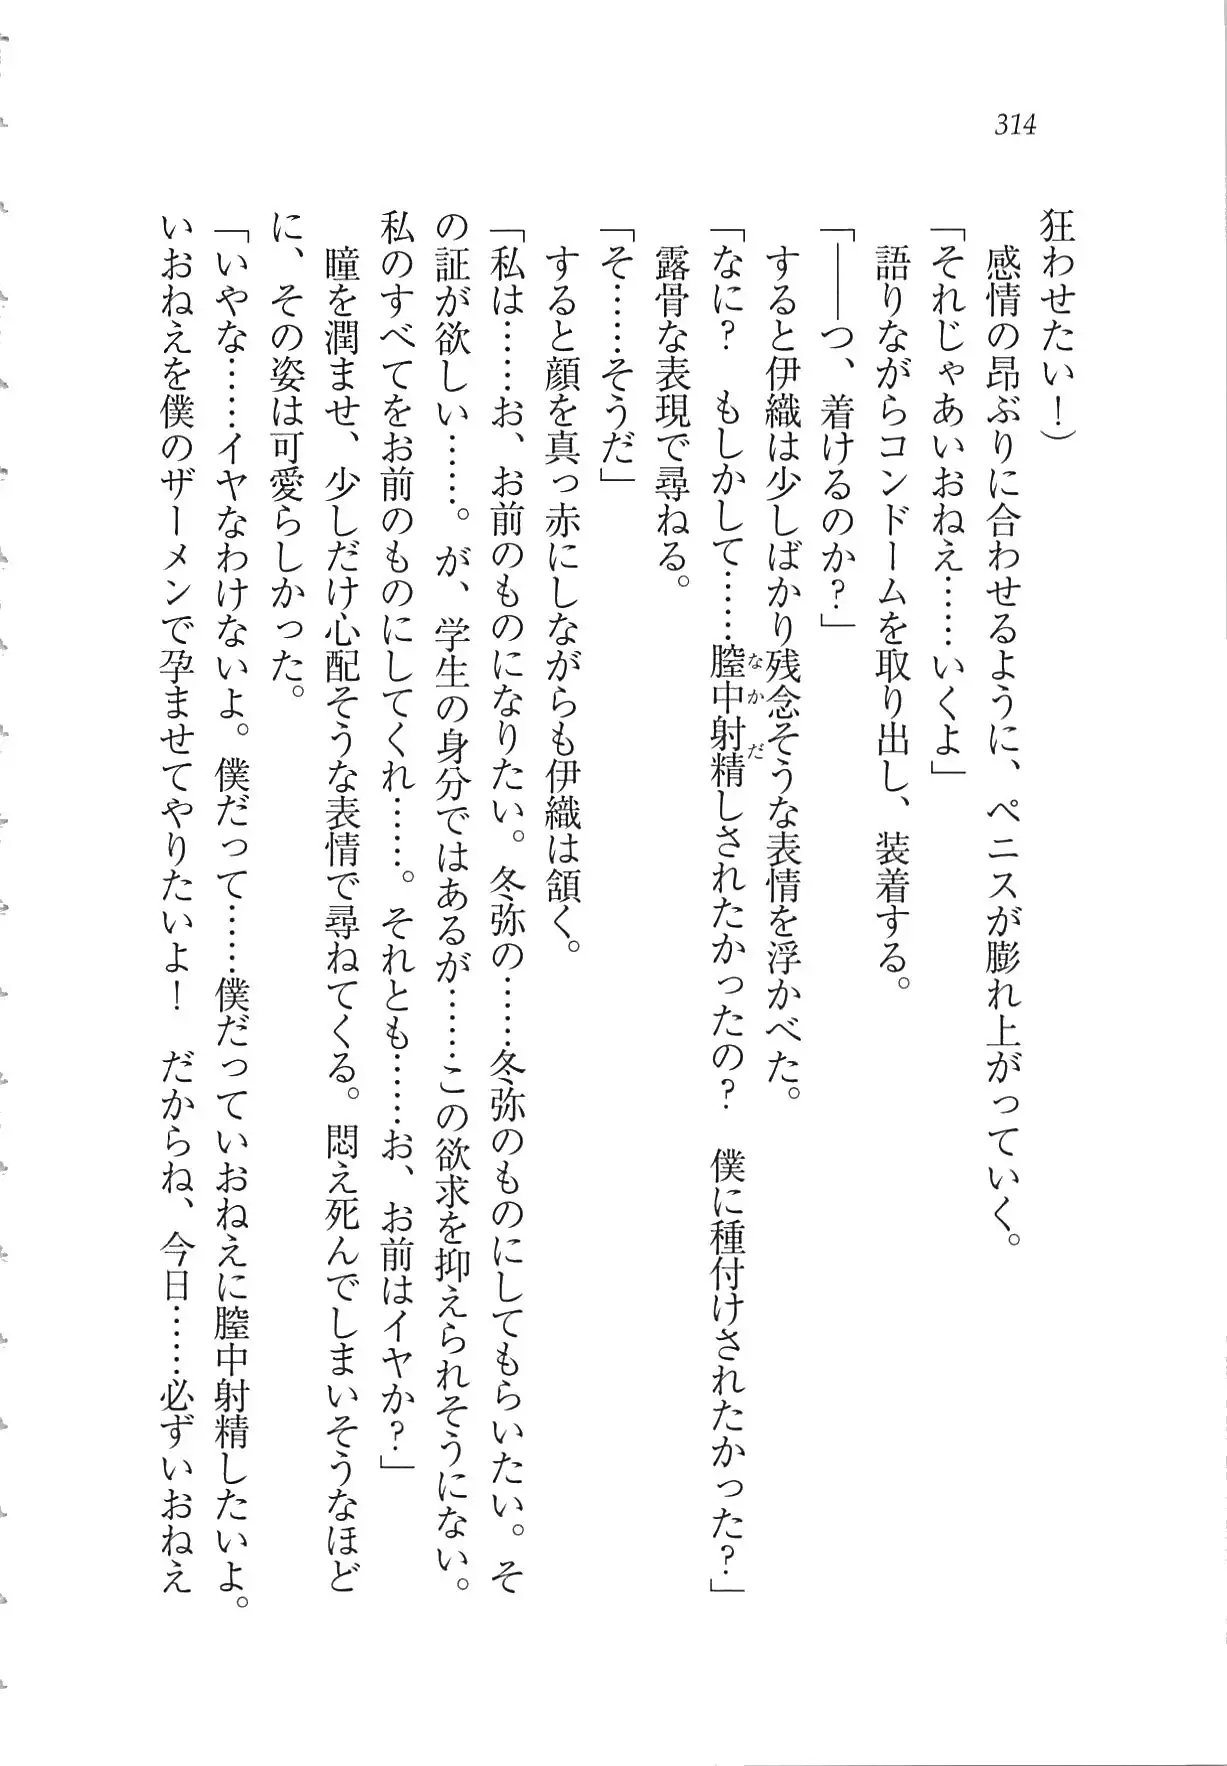 314
狂わせたい！）
　感情の昂ぶりに合わせるように、ペニスが膨れ上がっていく。
「それじゃあいおねえ……いくよ」
　語りながらコンドームを取り出し、装着する。
「――つ、着けるのか？」
　すると伊織は少しばかり残念そうな表情を浮かべた。
「なに？　もしかして……膣中射精しされたかったの？　僕に種付けされたかった？」
　露骨な表現で尋ねる。
「そ……そうだ」
　すると顔を真っ赤にしながらも伊織は頷く。
「私は……お、お前のものになりたい。冬弥の……冬弥のものにしてもらいたい。そ
の証が欲しい……。が、学生の身分ではあるが……この欲求を抑えられそうにない。
私のすべてをお前のものにしてくれ……。それとも……お、お前はイヤか？」
　瞳を潤ませ、少しだけ心配そうな表情で尋ねてくる。悶え死んでしまいそうなほど
に、その姿は可愛らしかった。
「いやな……イヤなわけないよ。僕だって……僕だっていおねえに膣中射精したいよ。
いおねえを僕のザーメンで孕ませてやりたいよ！　だからね、今日……必ずいおねえ